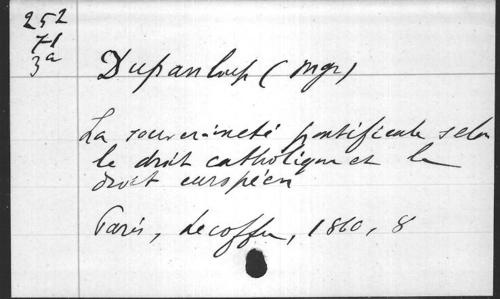 252
71
3a
Dupanloup (Mgr)
La souveraineté pontificale selon
le droit catholique et le
droit européen
Paris, Lecoffre, 1860, 8